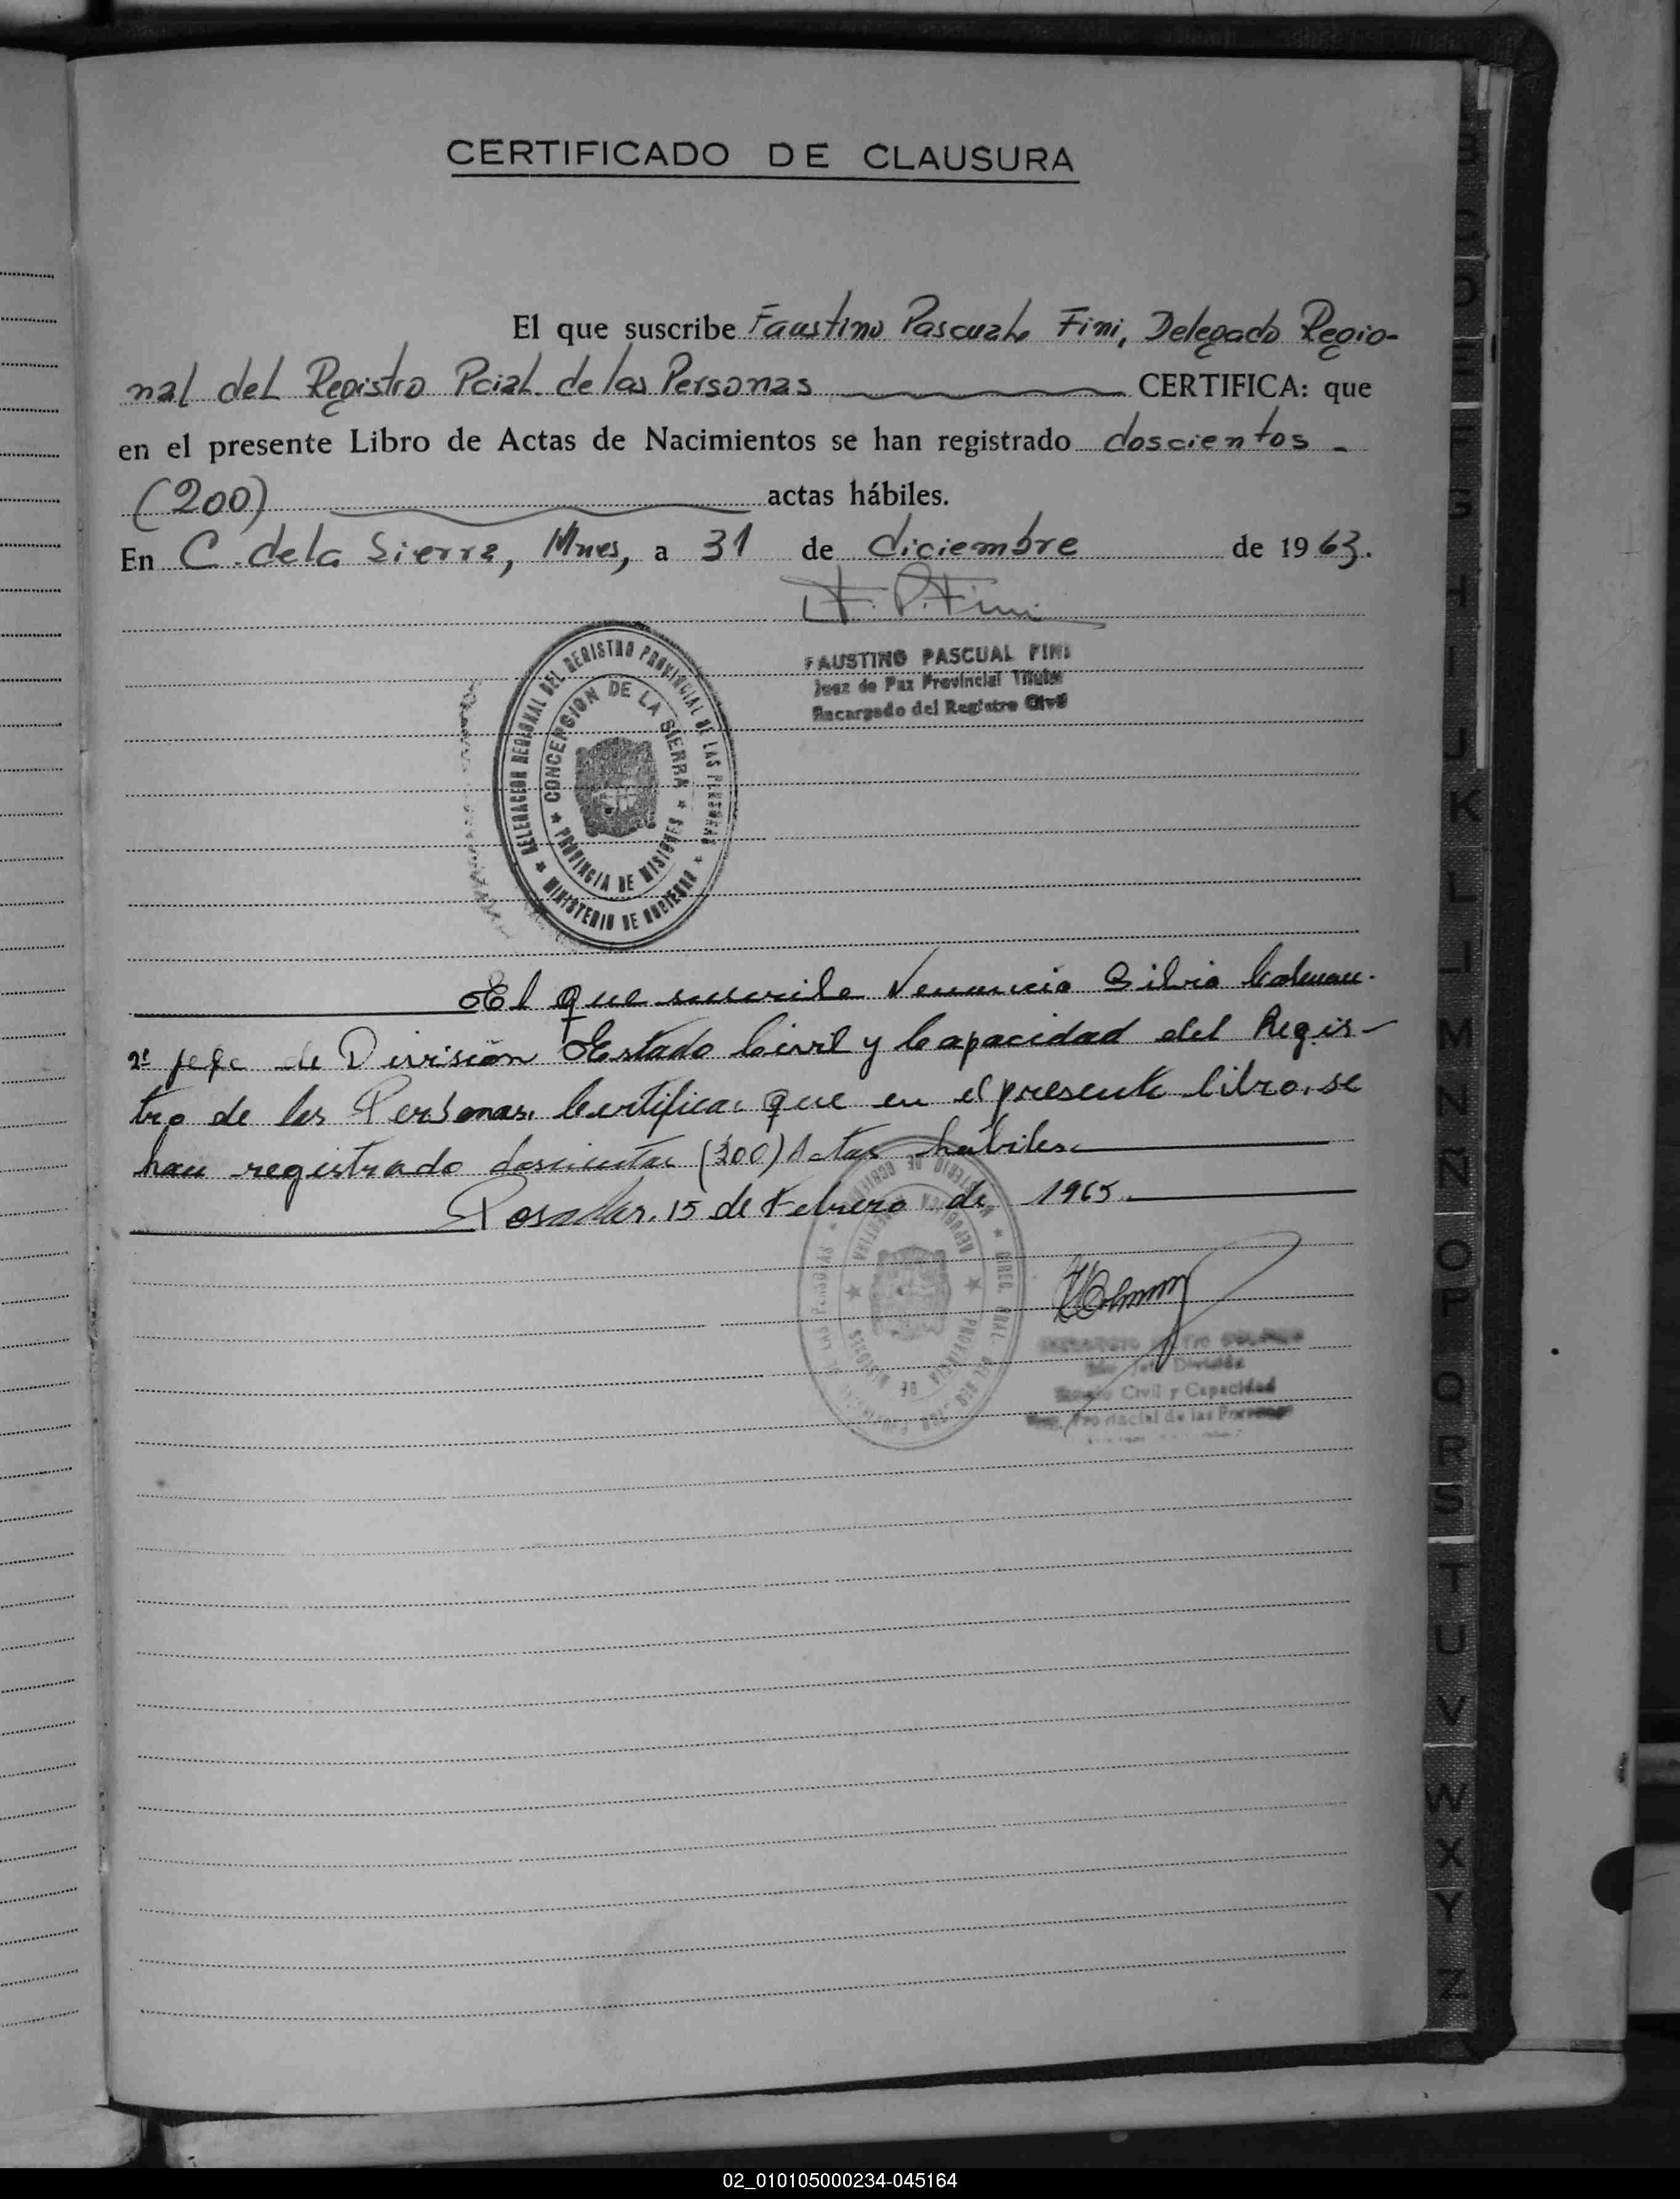 CERTIFICADO DE CLAUSURA
El que suscribe Faustino Pascual Fini, Delegado Regio-
nal del Registro Pcial. de las Personas CERTIFICA: que
en el presente Libro de Actas de Nacimientos se han registrado doscientos -
(200) actas hábiles.
En C. de la Sierra, Mnes, a 31 de diciembre de 1963.
F. P. Fini
FAUSTINO PASCUAL FINI
Juez de Paz Provincial Titular
Encargado del Registro Civil
DELEGACION REGIONAL DEL REGISTRO PROVINCIAL DE LAS PERSONAS
CONCEPCION DE LA SIERRA
PROVINCIA DE MISIONES
MINISTERIO DE GOBIERNO
El que suscribe Venancio Silvio Colman.
2º jefe de División Estado Civil y Capacidad del Regis-
tro de las Personas. Certifica: que en el presente libro. se
han registrado doscientas (200) Actas hábiles.
Posadas, 15 de Febrero de 1965.
REPUBLICA ARGENTINA
PROVINCIA DE MISIONES
VColman
División
Civil y Capacidad
Provincial de las Personas
B
C
D
E
F
G
H
I
J
K
L
Ll
M
N
Ñ
O
P
Q
R
S
T
U
V
W
X
Y
Z
02_010105000234-045164